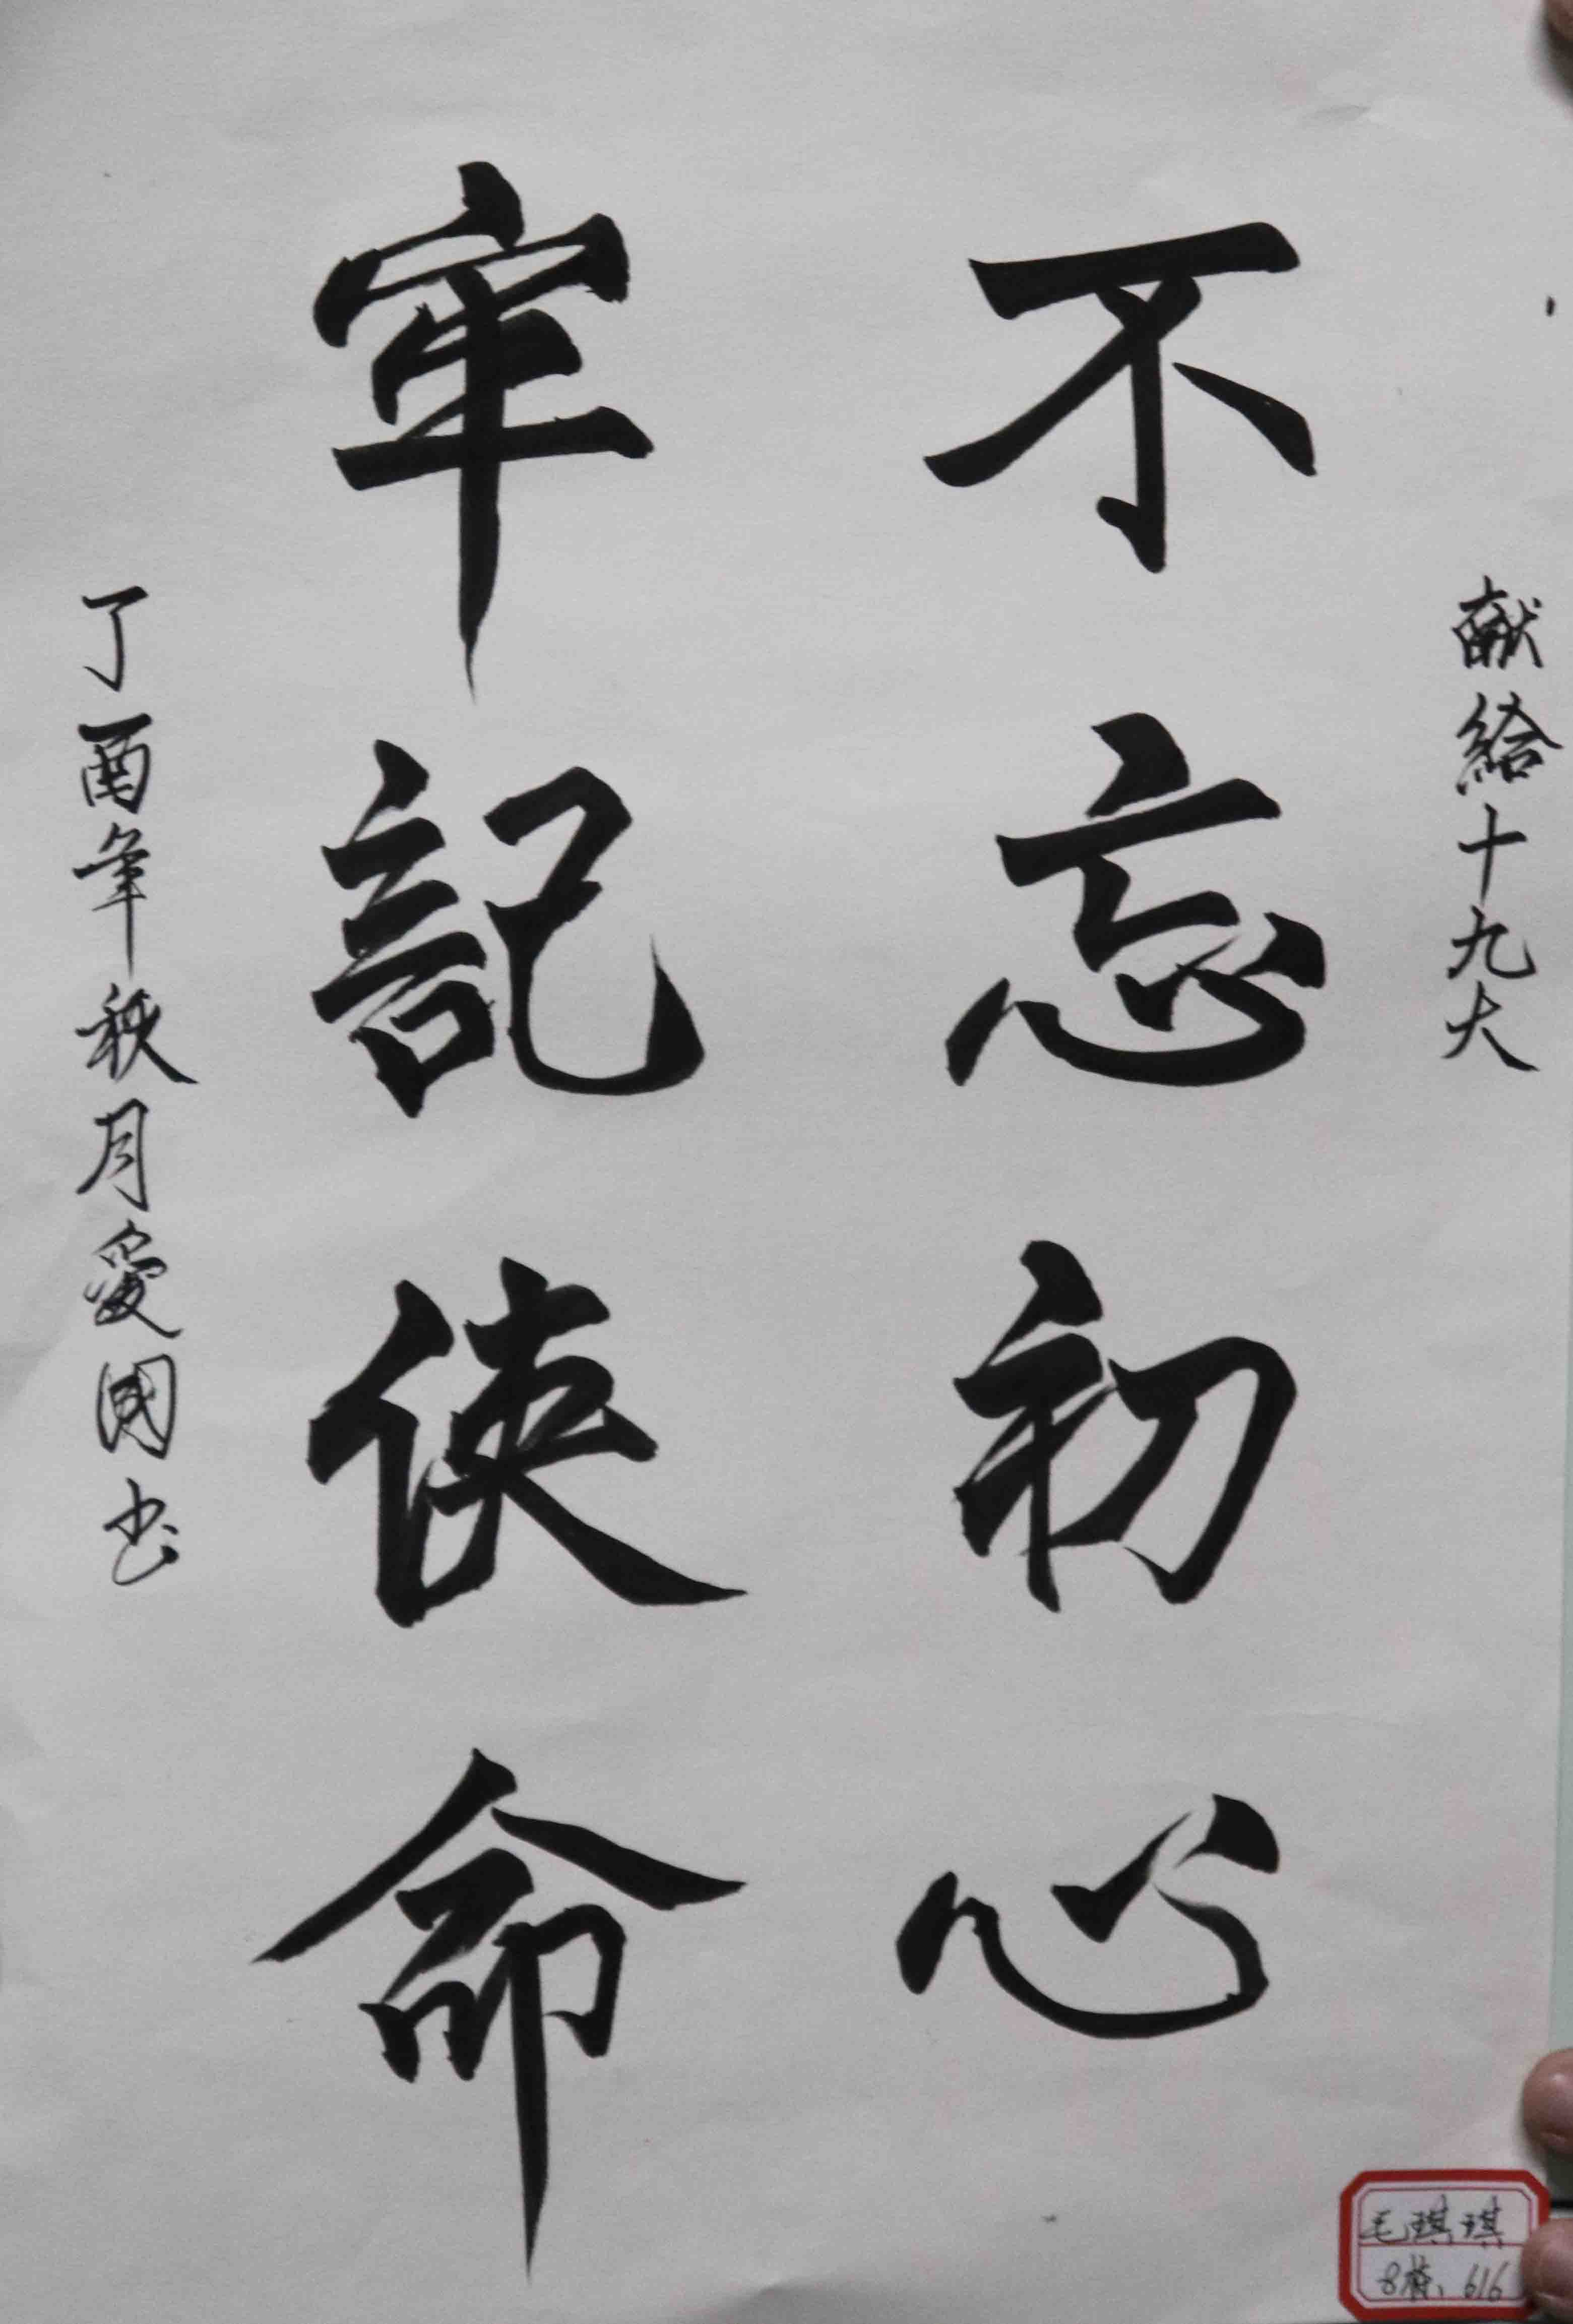 献给十九大
不忘初心
牢記使命
丁酉年秋月爱國书
毛琪琪
8栋，616